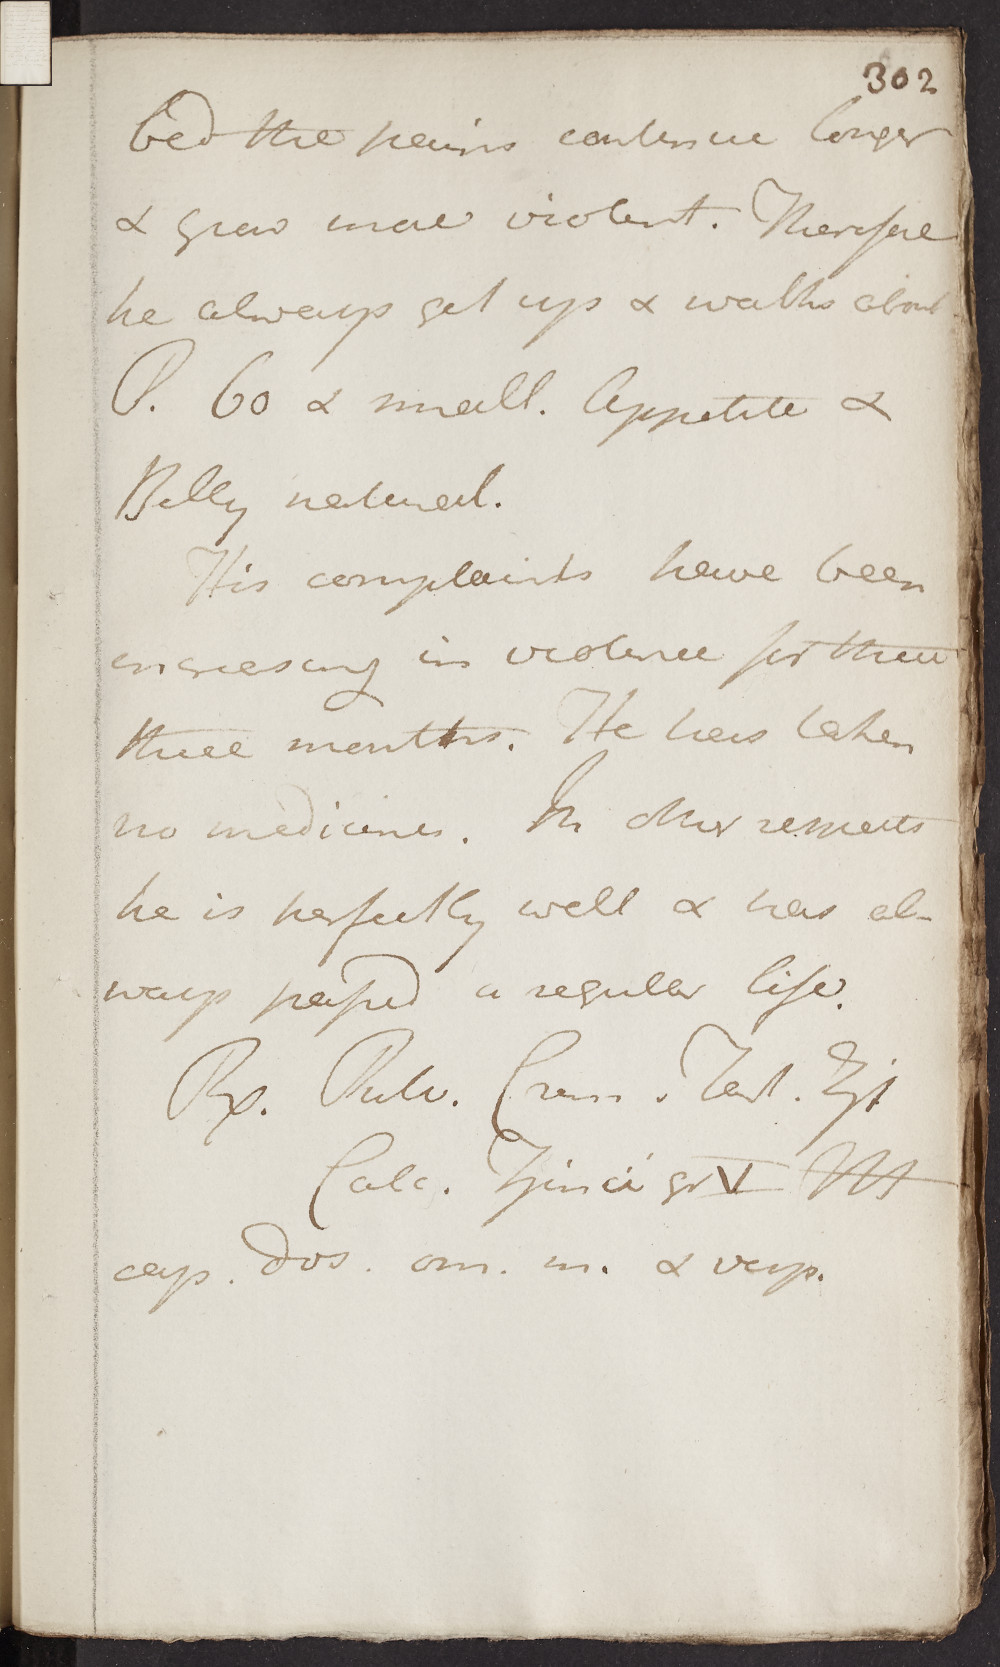 302
bed the pains continue longer
& grow more violent. Therefore
he always get up & walks about
P. 60 & small. Appetite &
Belly natural.
His complaints have been
increasing in violence for these
three months. He has taken
no medicines. In other respects
he is perfectly well & has al-
ways passed a regular life.
Rx. Pulv. Crem. Tart. ʒjſ
Calc. Zinci gr V M
cap. dos. om. m. & vesp.